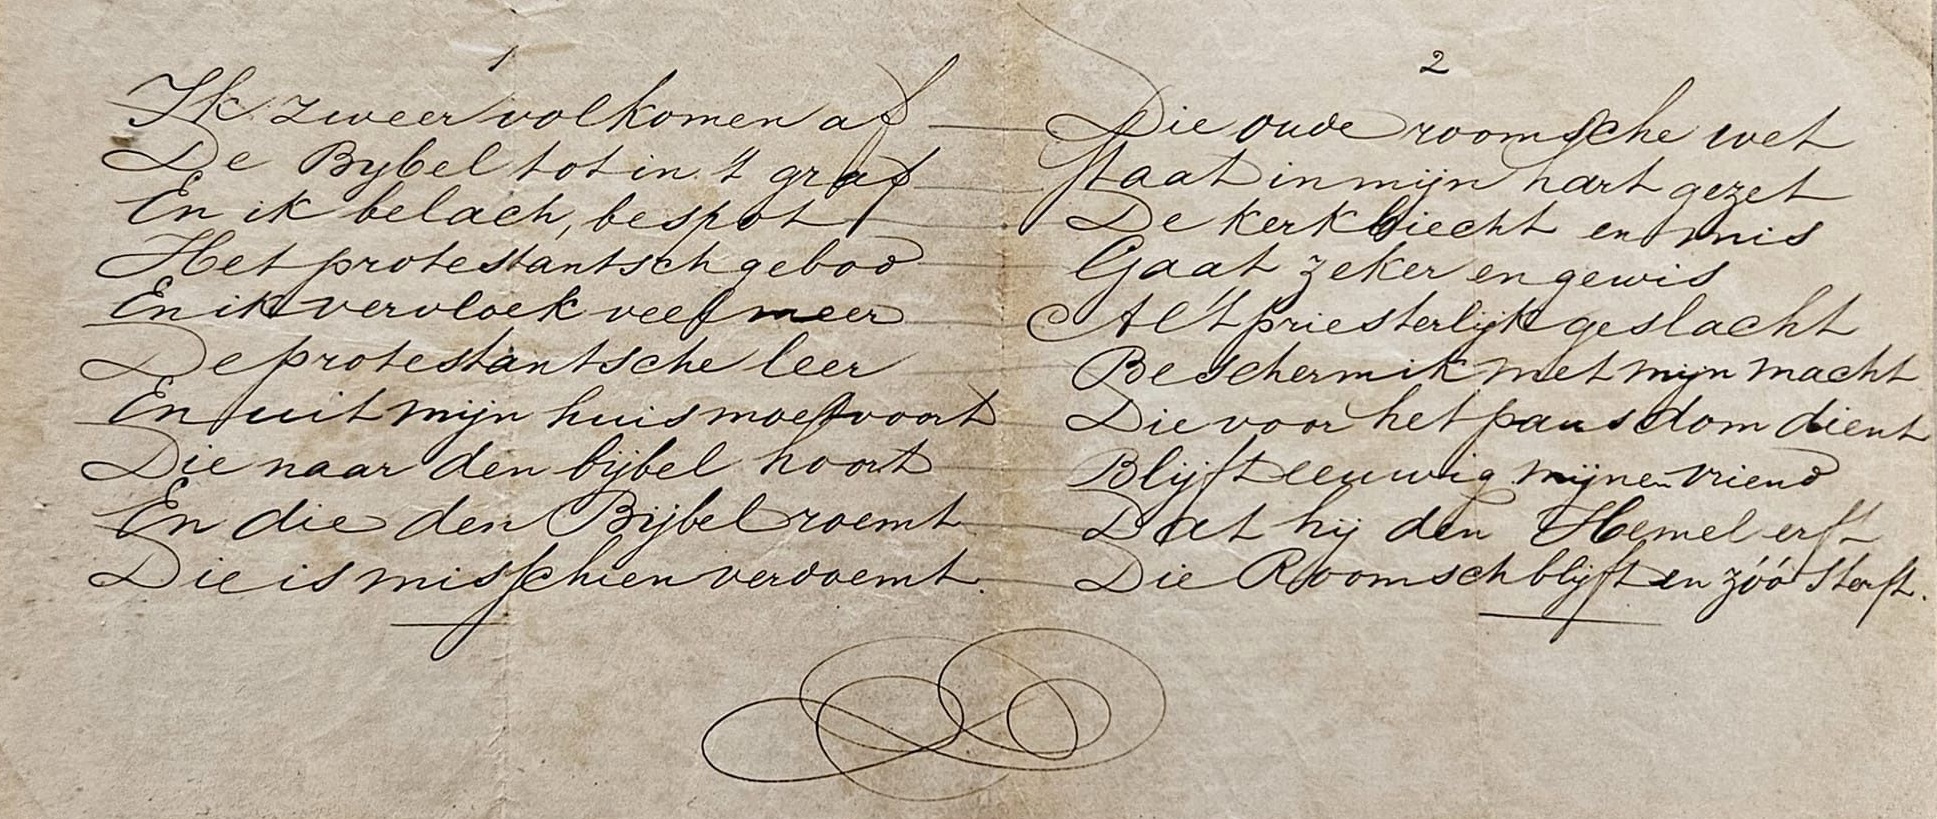 1
Ik zweer volkomen af
De Bybel tot in 't graf
En ik belach, bespot
Het protestantsch gebod
En ik vervloek veel meer
De protestantsche leer
En uit mijn huis moet voort
Die naar den bijbel hoort
En die den Bijbel roemt
Die is misschien verdoemt.
2
Die oude roomsche wet
Staat in mijn hart gezet
De kerk biecht en mis
Gaat zeker en gewis
Al 't priesterlijk geslacht
Bescherm ik met mijn macht
Die voor het pausdom dient
Blijft eeuwig mijnen vriend
Dat hij den Hemel erft
Die Roomsch blijft en zóó sterft.